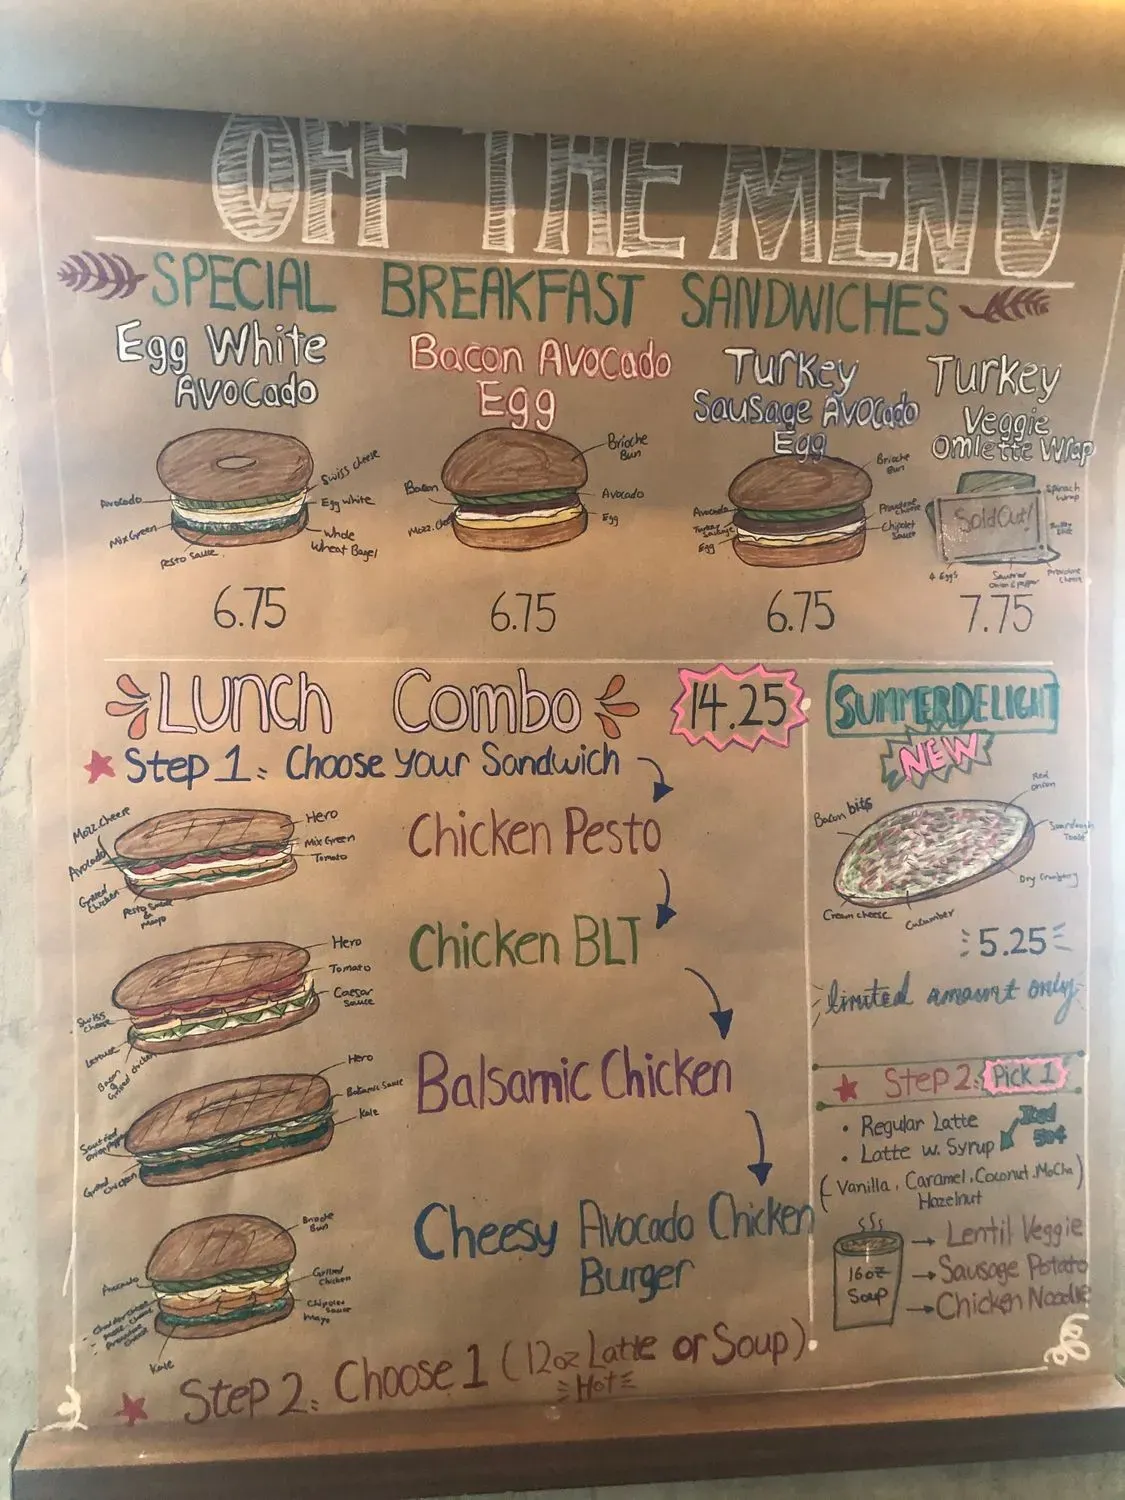 OFF THE MENU
SPECIAL BREAKFAST SANDWICHES
Egg White
Avocado
Avocado
Mix Green
Pesto Sauce
Swiss cheese
Egg white
Whole
Wheat Bagel
6.75
Bacon Avocado
Egg
Brioche
Bun
Bacon
Avocado
Egg
6.75
Turkey
Sausage Avocado
Egg
Brioche
Bun
Avocado
Turkey
Sausage
Egg
Chipotle
Sauce
6.75
Turkey
Veggie
Omlette Wrap
Spinach
Wrap
Sold Out!
4 Eggs
Provolone
Cheese
7.75
Lunch Combo
14.25
Step 1: Choose your Sandwich
Chicken Pesto
Mozz. Cheese
Avocado
Grilled
Chicken
Pesto Sauce
&
Mayo
Hero
Mix Green
Tomato
Chicken BLT
Hero
Tomato
Caesar
Sauce
Swiss
Cheese
Lettuce
Bacon
Grilled Chicken
Balsamic Chicken
Hero
Balsamic Sauce
Kale
Grilled Chicken
Cheesy Avocado Chicken
Burger
Brioche
Bun
Avocado
Grilled
Chicken
Mayo
Kale
Step 2: Choose 1 (12oz Latte or Soup)
Hot
SUMMER DELIGHT
NEW
Bacon bits
Red
onion
Toast
Dry Cranberry
Cucumber
Cream cheese
5.25
limited amount only
Step 2: Pick 1
• Regular Latte
• Latte w. Syrup
Iced
50¢
(Vanilla, Caramel, Coconut, Mocha)
Hazelnut
16oz
Soup
→ Lentil Veggie
→ Sausage Potato
→ Chicken Noodle